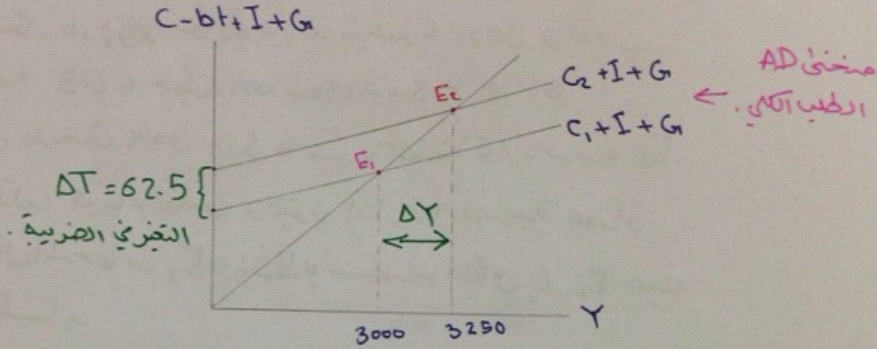 C-bt+I+G
C₂+I+G
منحنى AD
الطلب الكلي.
E₂
C₁+I+G
E₁
ΔT=62.5
التغير في الضريبة.
ΔY
3000
3250
Y